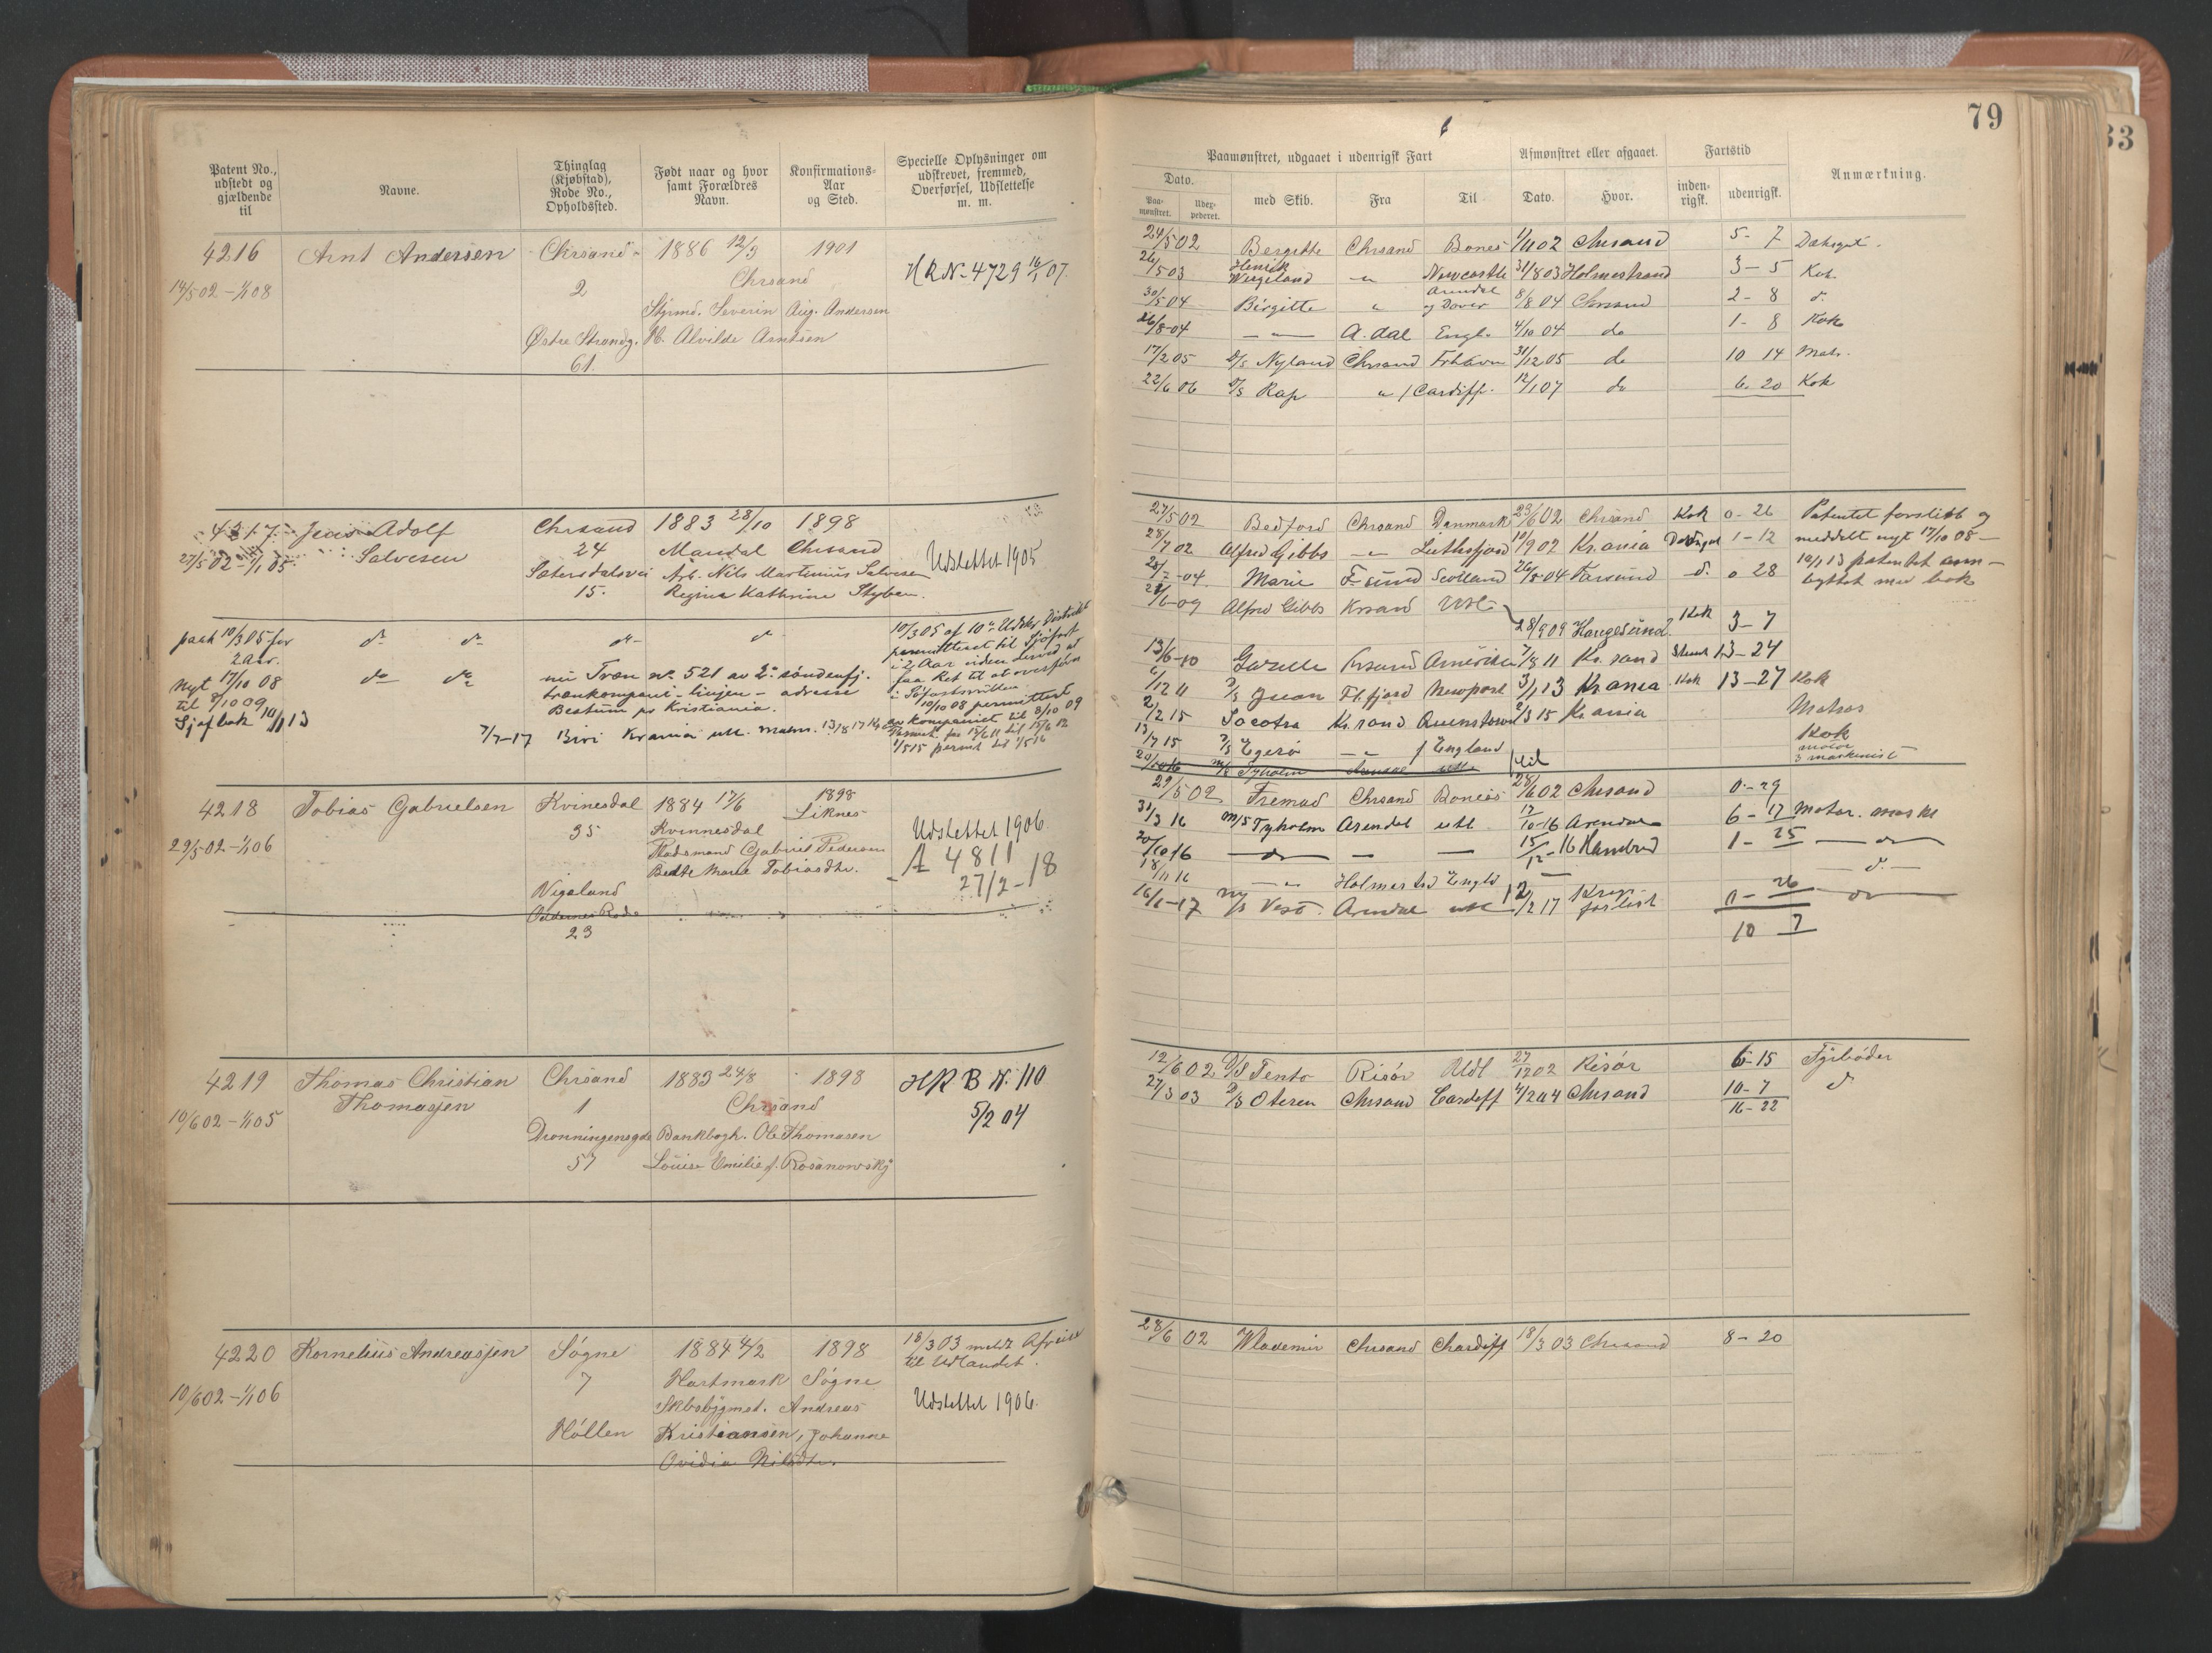 79
33
Patent No., udstedt og gjældende til
Navne.
Thinglag (Kjøbstad), Rode No., Opholdssted.
Født naar og hvor samt Forældres Navn.
Konfirmations-Aar og Sted.
Specielle Oplysninger om udskrevet, fremmed, Overførsel, Udslettelse m. m.
Paamønstret, udgaaet i udenrigsk Fart
Afmønstret eller afgaaet.
Fartstid
Anmærkning.
Dato.
Paa-mønstret.
Udex-pederet.
med Skib.
Fra
Til
Dato.
Hvor.
inden-rigsk.
udenrigsk.
4216 Arnt Andersen Chrsand 1886 12/3 1901
14/5 02 - 1/1 08 2 Chrsand HRN. 4729 16/1 07.
Styrmd. Severin Aug. Andersen
Østre Strandg. H. Alvilde Arntsen
61.
24/5 02 Bergitte Chrsand Bones 1/11 02 Chrsand 5 - 7
26/5 03 Henrik Wergeland " Newcastle 31/8 03 Holmestrand 3 - 5 Kok.
30/5 04 Birgitte " Arendal og Dover 8/8 04 Chrsand 2 - 8 d.
26/8-04 — " — A.dal Engl. 4/10 04 do 1 - 8 Kok
17/2 05 D/S Nyland Chrsand Frhavn 31/12 05 do 10 14 Matr.
22/6 06 D/S Kap " f Cardiff. 12/1 07 do 6 - 20 Kok
4217 Jens Adolf Chrsand 1883 28/10 1898
Salvesen 24 Mandal Chrsand
27/5 02 - 1/1 05. Sætersdalsvei Arb. Nils Martinius Salvesen Udslettet 1905
15. Regine Kathrine
27/5 02 Bedford Chrsand Danmark 23/6 02 Chrsand Kok 0 - 26 Patentet forslidt og
28/7 02 Alfred Gibbs — " — 10/9 02 Krania 1 - 12 meddelt nyt 17/10 08 —
28/7-04. Marie F-sund Scotland 26/8 04 Farsund d. 0 28 10/1 13 patentet om-
Alfred Gibbs Krsand Utl. byttet med bok
28/9 09 Haugesund. Kok 3 - 7
13/6-10 Gazelle Krsand Amerika 7/8 11 Kr.sand 13 - 24
6/12 11 D/S Juan Fl.fjord Newport 3/1 13 Krania Kok 13 - 27 Kok
2/2 15 Socotra Kr.sand Queenstown 2/3 15 Krania Matros
13/7 15 D/S Egerø — " — f England Kok
20/10 16 M/S Tyholm Arendal utl.
pass 10/3 05 for d. d. do d 10/3 05 af 10de Udskr. Distrikt
2 Aar. permitteret til Sjøfart
i 2 Aar uden derved at
nyt 17/10 08 do do nu Træn no. 521 av 2. søndenfj. faa Ret til at overføres
til 8/10 09 trænkompani - linjen - adresse i Søfartsrullen.
Sjøf.bok 10/1 13 Bestum pr Kristiania. 10/10 08 permitteret
av kompaniet til 8/10 09
7/7-17 Krania utl. matr.
1/5 15 permit til 1/5 16
4218 Tobias Gabrielsen Kvinesdal 1884 17/6 1898 Liknes
29/5 02 - 1/1 06 35 Kvinnesdal Udslettet 1906
Gabriel Pedersen A 4811
Marie Tobiasdtr. 27/2 - 18
Vigeland
Oddernes Rode
23
29/5 02 Fremad Chrsand Boness 28/6 02 Chrsand 0 - 29
31/3 16 M/S Tyholm Arendal utl. 17/10-16 Arendal 6 - 17 Motor. mask
20/10 16 — do — — — 15/12-16 1 - 25 — do —
18/11 16 — " — Holmestrd Engld — d. —
16/1-17 M/S Vest. Arendal utl. 12/2 17 Krigsforlist 0 - 26 — do —
10 7
4219 Thomas Christian Chrsand 1883 24/8 1898 HRB N. 110
Thomassen 1 Chrsand 5/2 04
10/6 02 - 1/1 05 Dronningensgde Bankbogh. Ole Thomasen
57 Louise Emilie f. Rosanowsky
12/6 02 D/S Tento Risør Udl 27/12 02 Risør 6 - 15 Fyrbøder
27/3 03 D/S Oteren Chrsand Cardiff 4/2 04 Chrsand 10 - 7 d.
16 - 22
4220 Kornelius Andreassen Søgne 1884 4/2 1898 18/3 03 meldt Afreise
til Udlandet.
10/6 02 - 1/1 06 7 Hartmark Søgne
Skbsbygmst. Andreas Udslettet 1906.
Høllen Kristiansen, Johanne
Ovidia Nilsdtr.
28/6 02 Wlademir Chrsand Chardiff 18/3 03 Chrsand 8 - 20